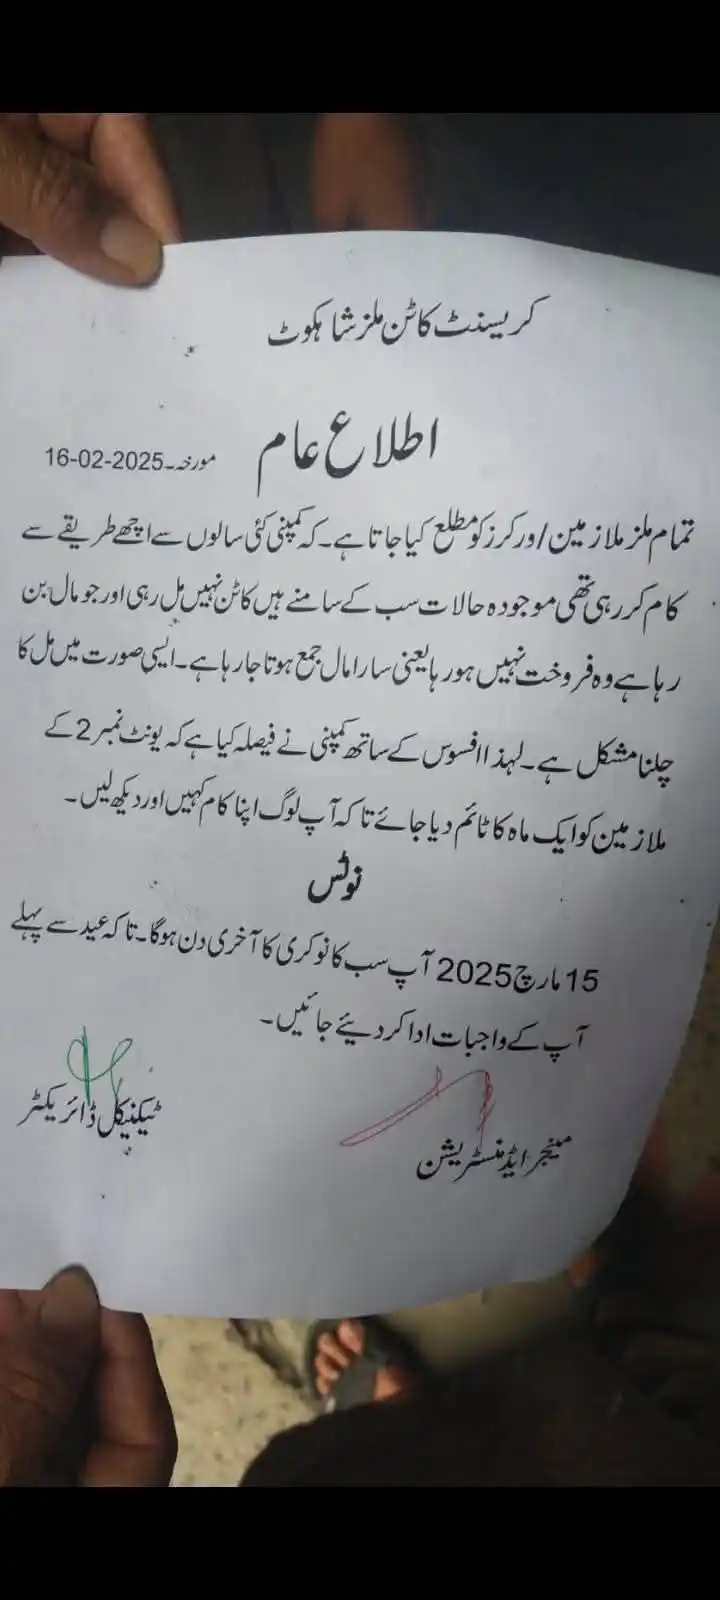 کریسنٹ کاٹن ملز شاہکوٹ
اطلاع عام
مورخہ۔16-02-2025
تمام ملز ملازمین/ورکرز کو مطلع کیا جاتا ہے۔ کہ کمپنی کئی سالوں سے اچھے طریقے سے
کام کر رہی تھی موجودہ حالات سب کے سامنے ہیں کاٹن نہیں مل رہی اور جو مال بن
رہا ہے وہ فروخت نہیں ہو رہا یعنی سارا مال جمع ہوتا جا رہا ہے۔ ایسی صورت میں مل کا
چلنا مشکل ہے۔ لہذا افسوس کے ساتھ کمپنی نے فیصلہ کیا ہے کہ یونٹ نمبر 2 کے
ملازمین کو ایک ماہ کا ٹائم دیا جائے تا کہ آپ لوگ اپنا کام کہیں اور دیکھ لیں۔
نوٹس
15 مارچ 2025 آپ سب کا نوکری کا آخری دن ہوگا۔ تا کہ عید سے پہلے
آپ کے واجبات ادا کر دیئے جائیں۔
ٹیکنیکل ڈائریکٹر
مینجر ایڈمنسٹریشن